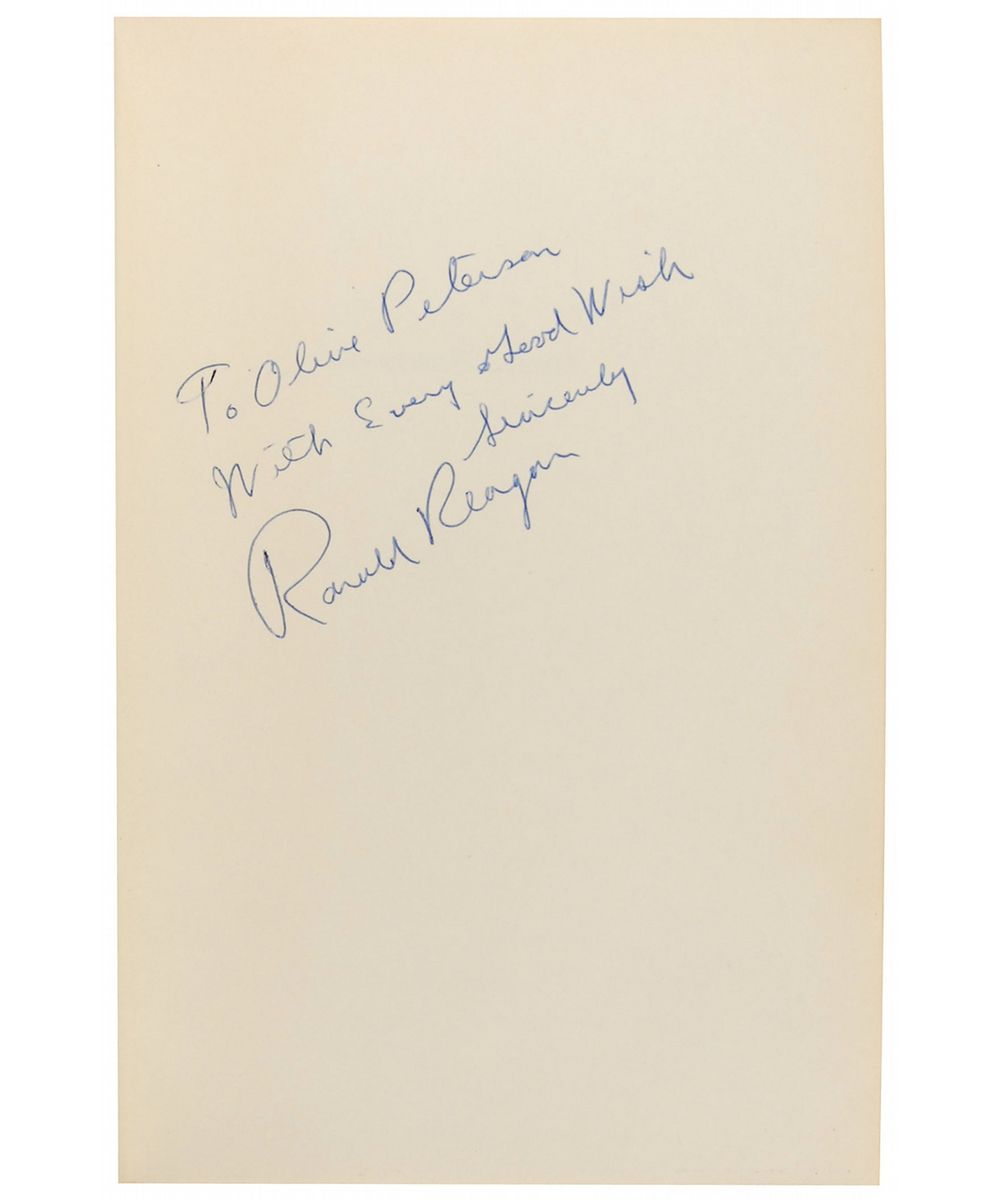 To Olive Peterson
With Every Good Wish
Sincerely
Ronald Reagan